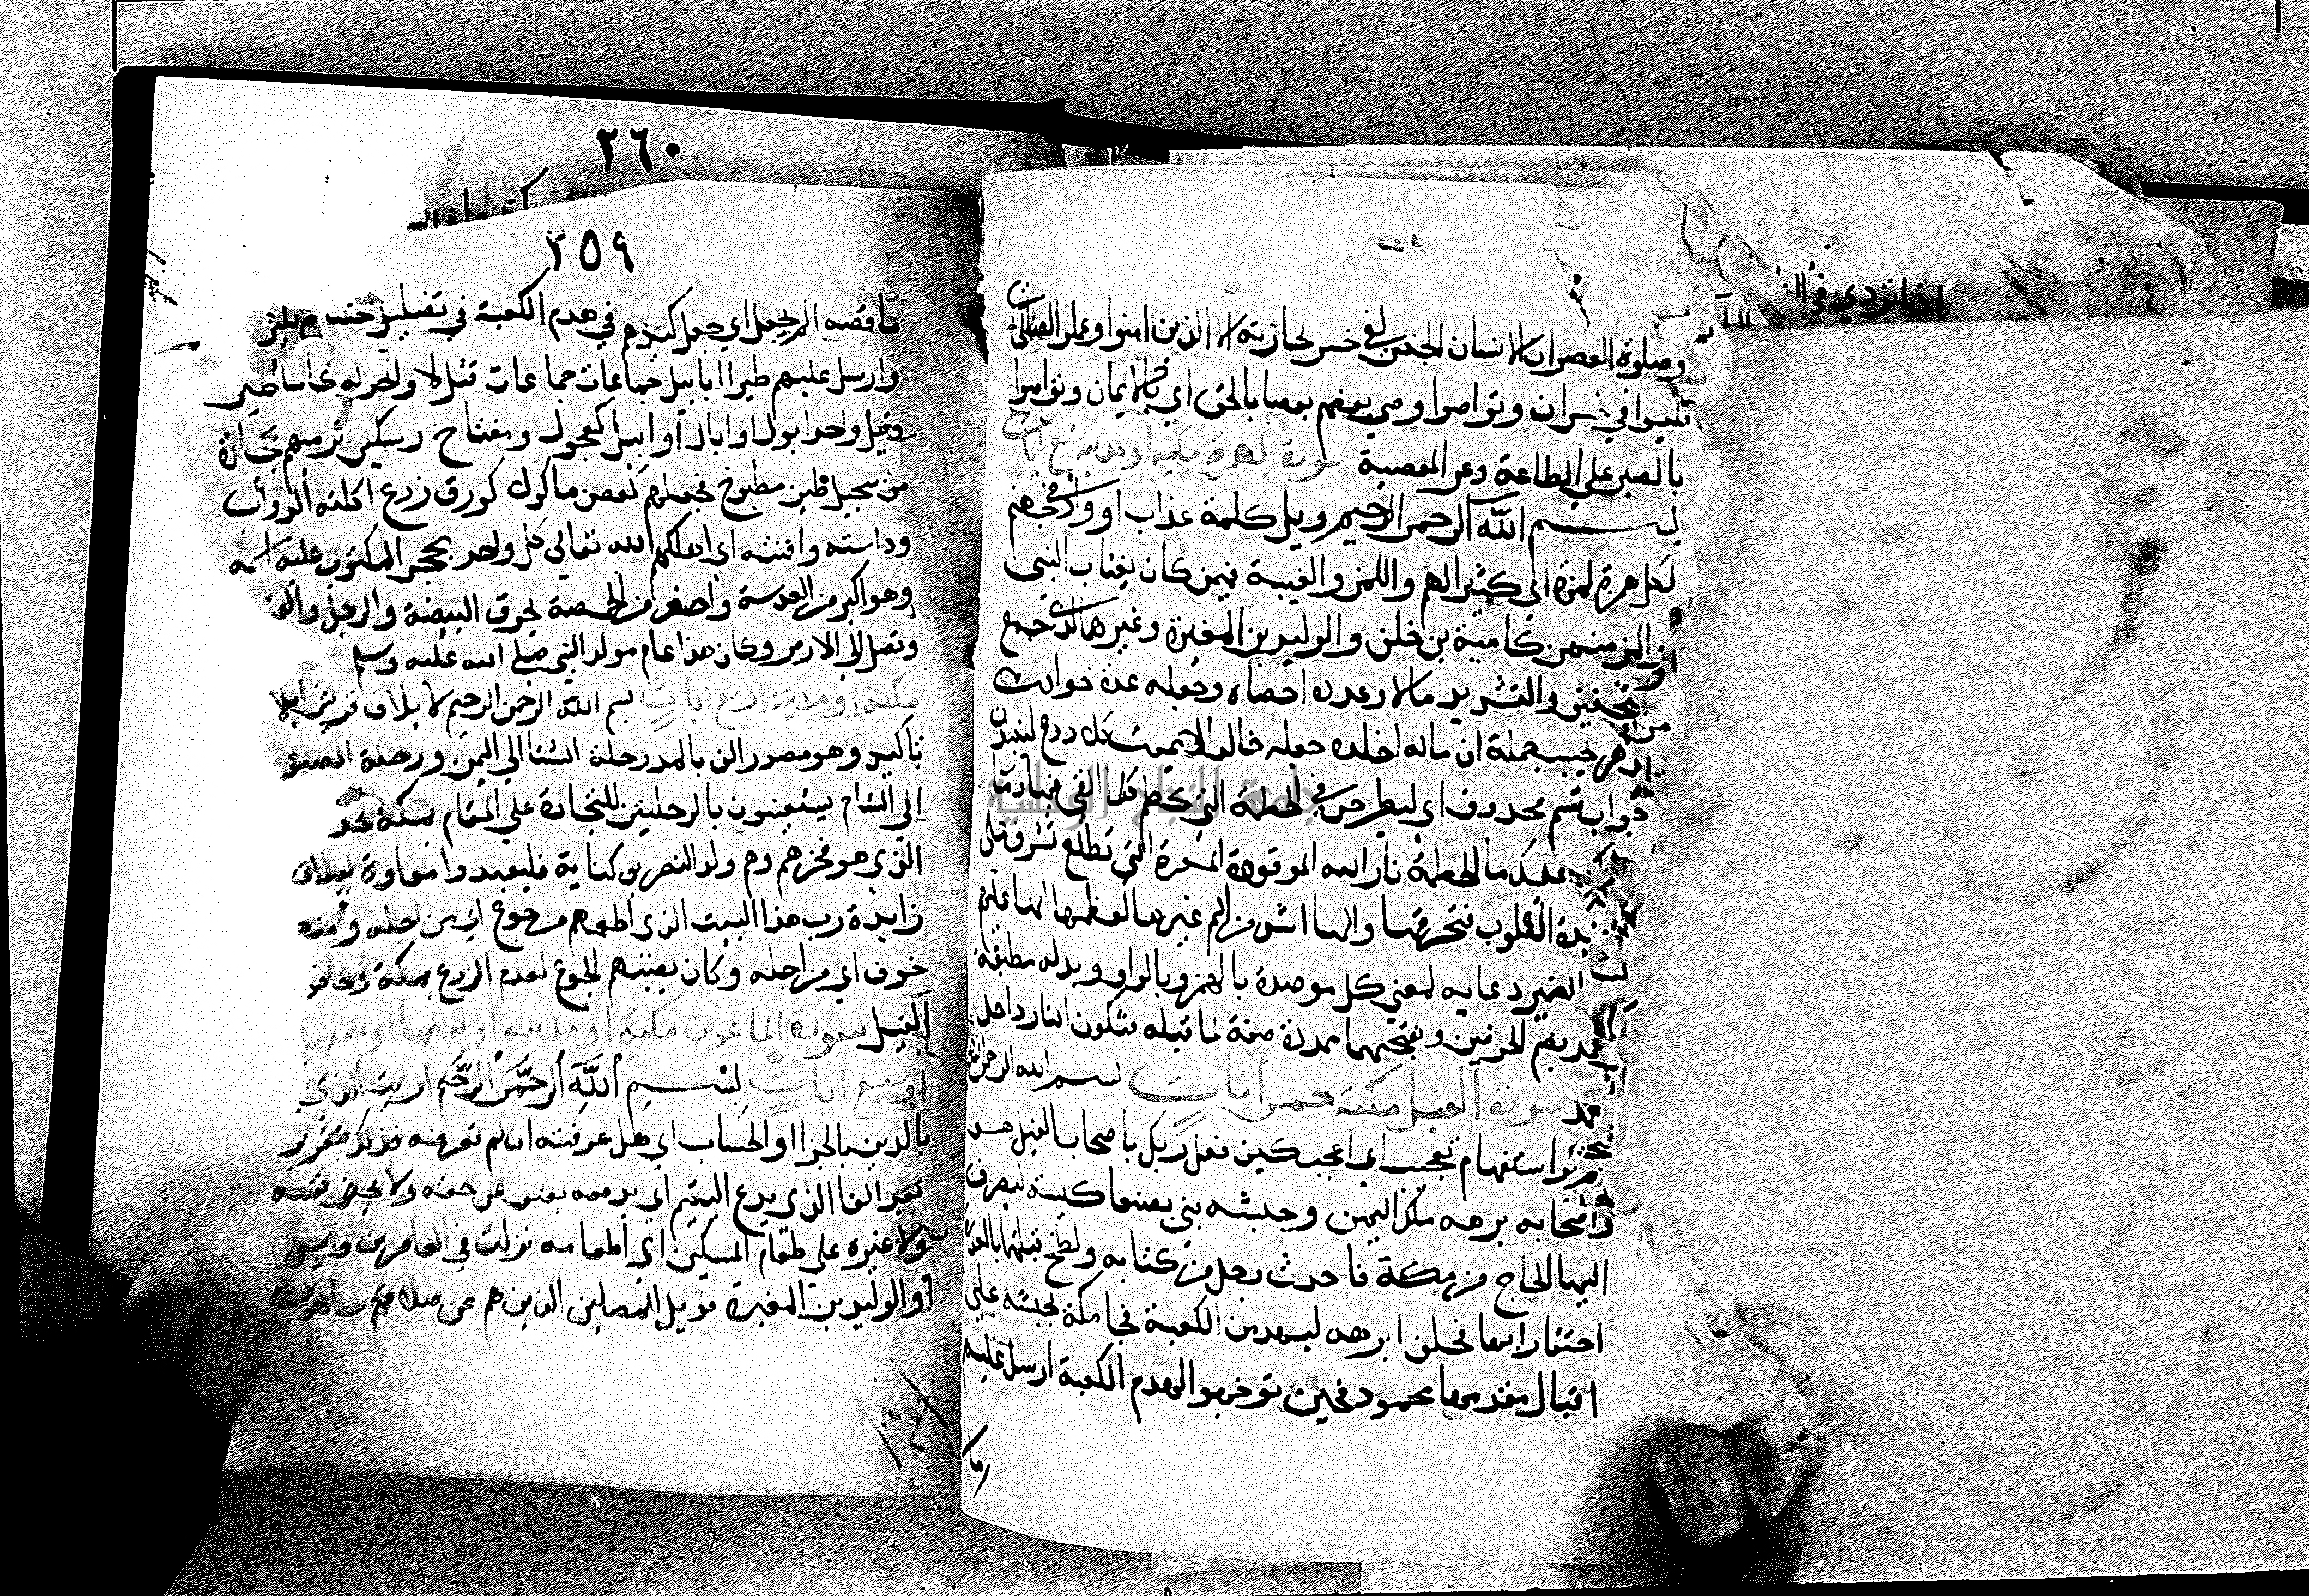 وصلوة العصر ان الانسان الجنس لفي خسر لجارته الا الذين امنوا وعملوا الصالحات
فليسوا في خسران وتواصوا وصي بعضهم بعضا بالحق اي بالايمان وتواصوا
بالصبر على الطاعة وعن المعصية سورة الهمزة مكية او مدنية تسع ايات
بسم الله الرحمن الرحيم ويل كلمة عذاب او واد في جهنم
لكل همزة لمزة اي كثير الهمز واللمز والغيبة فيمن كان يغتاب النبي
والمؤمنين كامية بن خلف والوليد بن المغيرة وغيرهما الذي جمع
بالتخفيف والتشديد مالا وعدده احصاه وجعله عدة لحوادث
الدهر يحسب بجهله ان ماله اخلده جعله خالدا لا يموت كلا ردع لينبذن
جواب قسم محذوف اي ليطرحن في الحطمة التي تحطم كلما القي فيها وما
ادريك اعلمك ما الحطمة نار الله الموقدة المسعرة التي تطلع تشرف على
الافئدة القلوب فتحرقها والمها اشد من الم غيرها للطفها انها عليهم
الضمير رعاية لمعنى كل موصدة بالهمز وبالواو وبدله مطبقة
في عمد بضم الحرفين وبفتحهما ممددة صفة لما قبله فتكون النار داخل
العمد سورة الفيل مكية خمس ايات بسم الله الرحمن الرحيم
الم تر استفهام تعجيب اي اعجب كيف فعل ربك باصحاب الفيل هو
واصحابه برهه ملك اليمن وجيشه بني بصنعا كنيسة ليصرف
اليها الحاج من مكة فاحدث رجل من كنانة ولطخ قبلتها بالعذرة
احتقارا بها فحلف ابرهه ليهدمن الكعبة فجا مكة بجيشه على
افيال مقدمها محمود فحين توجهوا لهدم الكعبة ارسل عليهم
ما
٢٦٠
٢٥٩
ما قصه الم يجعل اي جعل كيدهم في هدم الكعبة في تضليل
وارسل عليهم طيرا ابابيل جماعات جماعات قيل لا واحد له كاساطير
وقيل واحد ابول او ابال او ابيل كعجول ومفتاح وسكين ترميهم بحجارة
من سجيل طين مطبوخ فجعلهم كعصف ماكول كورق زرع اكلته الدواب
وداسته وافنته اي اهلكهم الله تعالى كل واحد بحجره المكتوب عليه اسمه
وهو اكبر من العدسة واصغر من الحمصة يخرق البيضة والرجل والفيل
ويصل الى الارض وكان هذا عام مولد النبي صلى الله عليه وسلم
مكية او مدنية اربع ايات بسم الله الرحمن الرحيم لايلاف قريش ايلا
تاكيد وهو مصدر الف بالمد رحلة الشتا الى اليمن ورحلة الصيف
الى الشام يستعينون بالرحلتين للتجارة على المقام بمكة
الذي هو فخرهم وهم ولد النضر بن كنانة فليعبدوا
زايدة رب هذا البيت الذي اطعمهم من جوع اي من اجله وامنهم
خوف اي من اجله وكان يصيبهم الجوع لعدم الزرع بمكة وخافوا
الفيل سورة الماعون مكية او مدنية او نصفها او نصفها
سبع ايات بسم الله الرحمن الرحيم ارايت الذي
بالدين بالجزا والحساب اي هل عرفته ان لم تعرفه فذلك بتقدير
بعد الفا الذي يدع اليتيم اي يدفعه بعنف عن حقه ولا يحض نفسه
ولا غيره على طعام المسكين اي اطعامه نزلت في العاص بن وايل
او الوليد بن المغيرة فويل للمصلين الذين هم عن صلاتهم ساهون